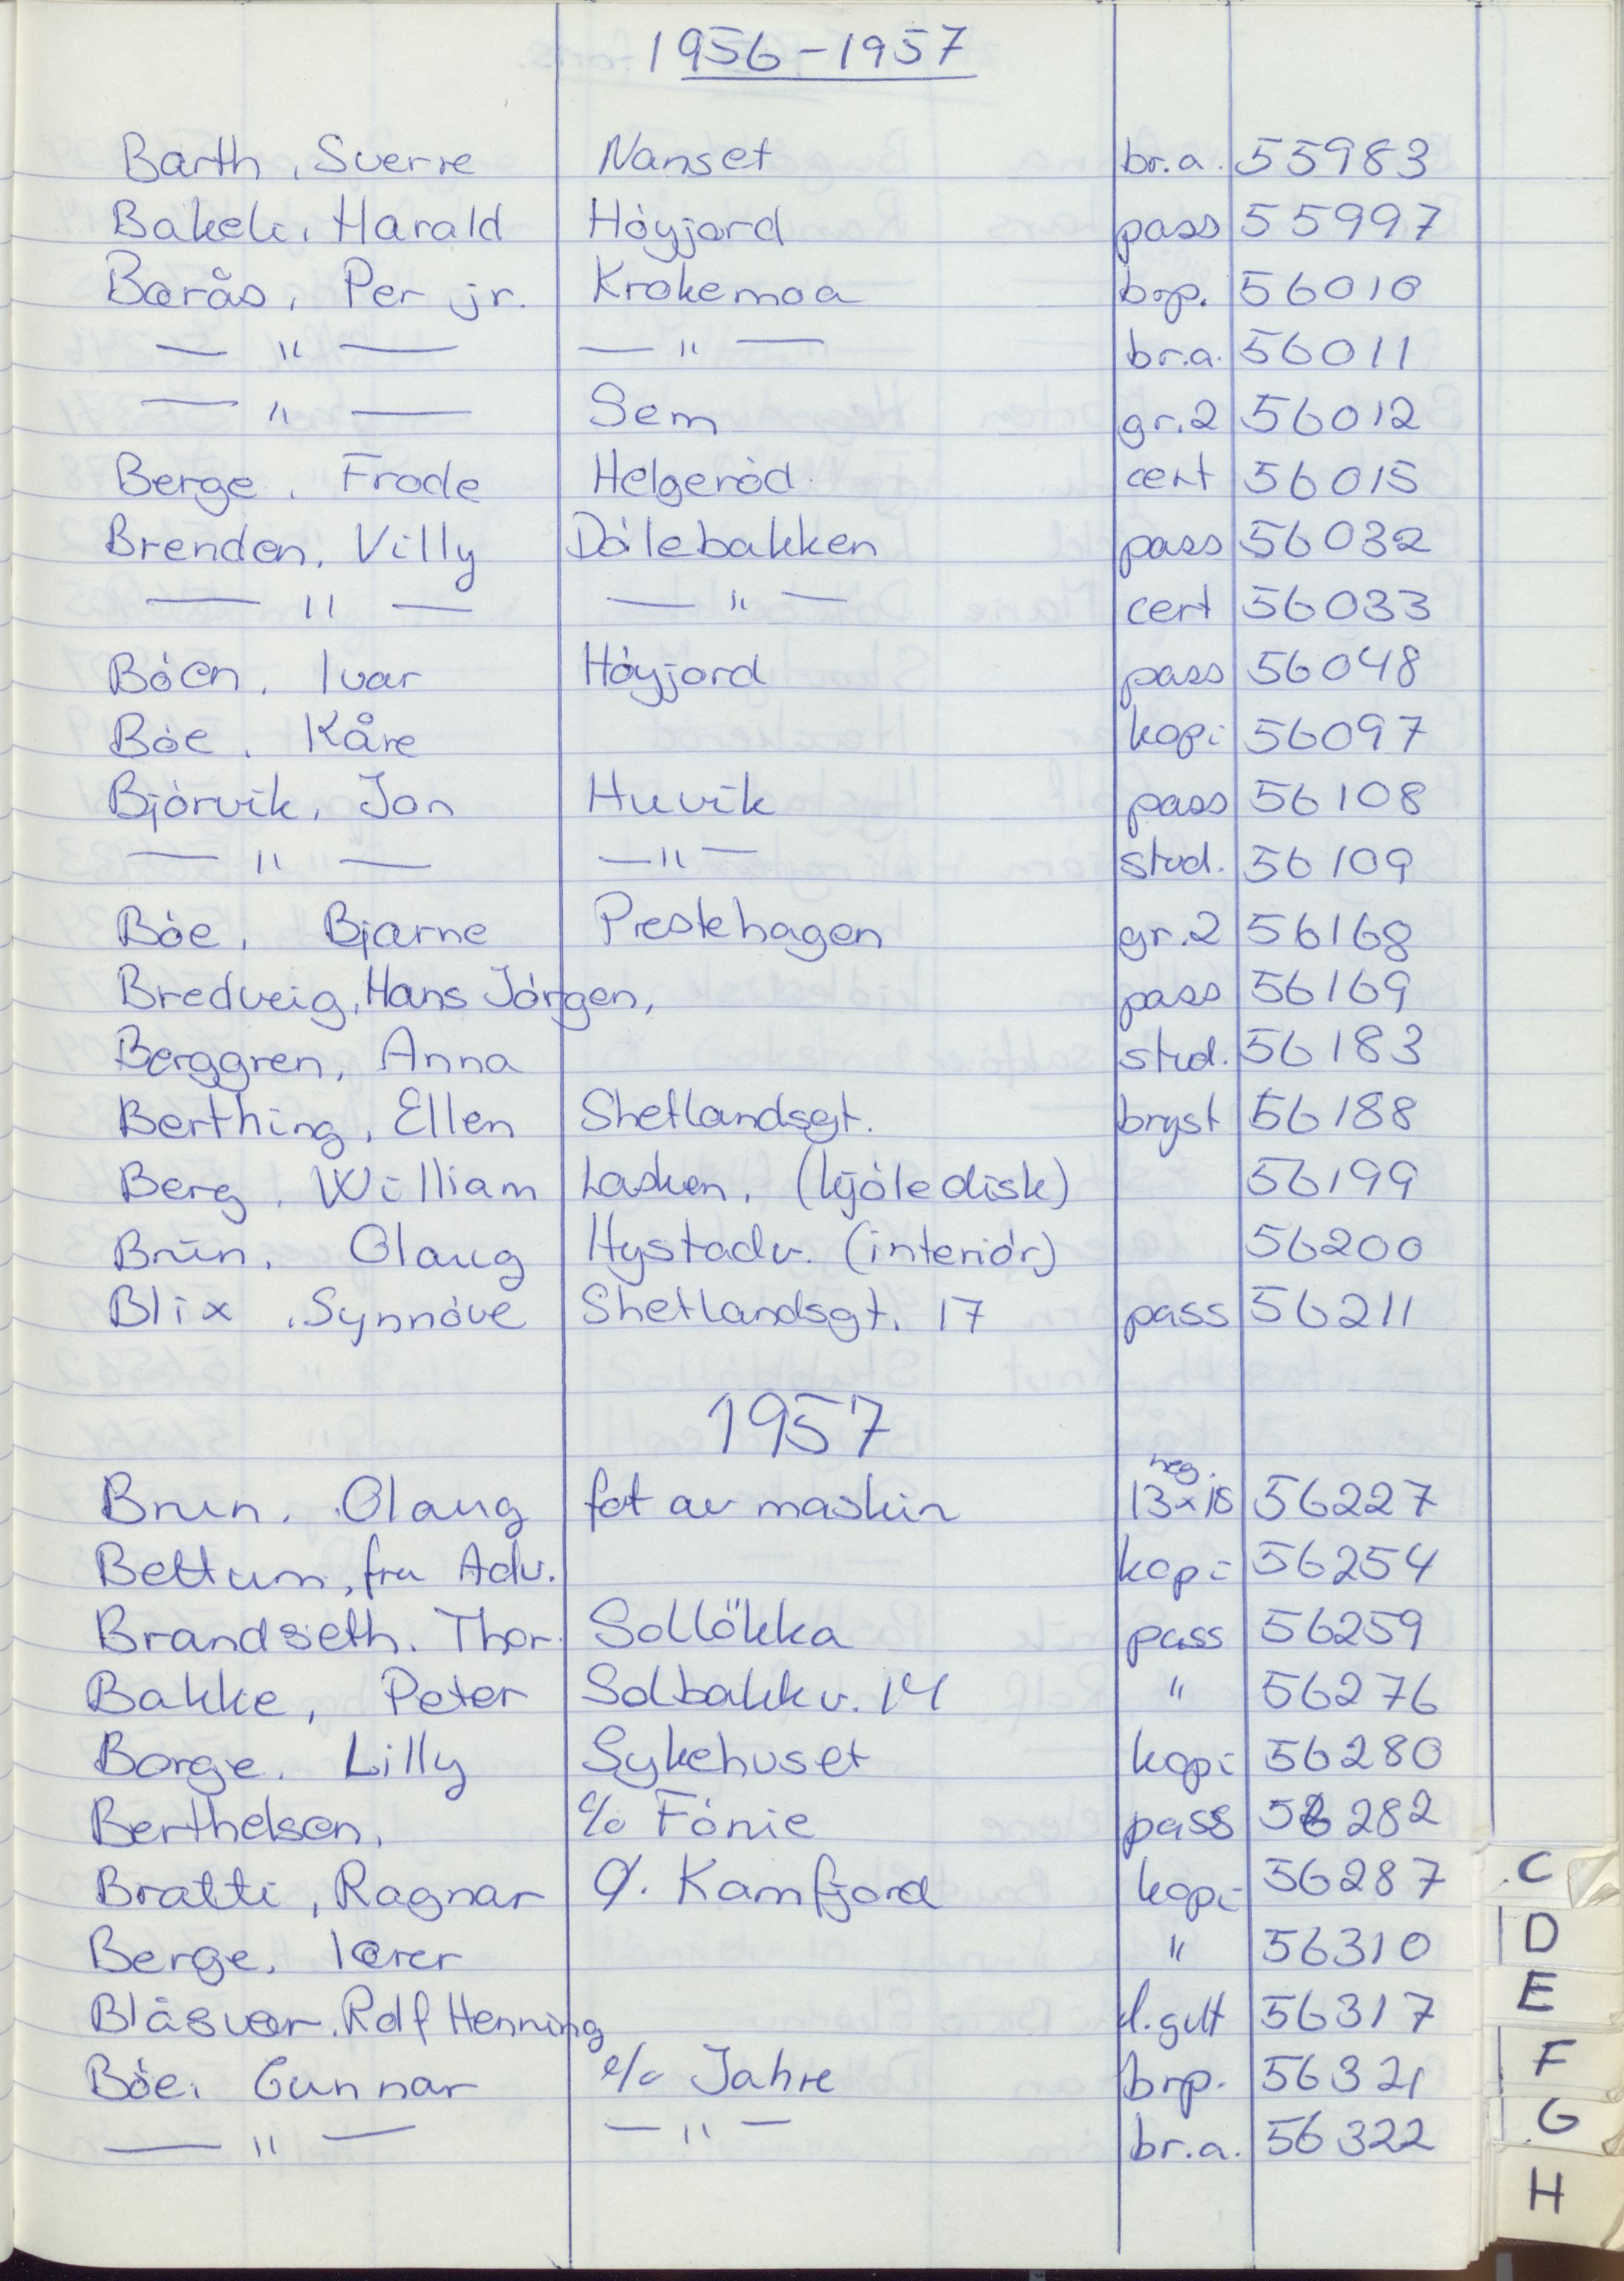 1956-1957
Barth, Sverre Nanset br.a. 55983
Bakek, Harald Höyjord pass 55997
Barås, Per jr. Krokemoa brp. 56010
— " — — " — br.a. 56011
— " — Sem gr.2 56012
Berge, Frode Helgeröd cert 56015
Brenden, Villy Dölebakken pass 56032
— " — — " — cert 56033
Böen, Ivar Höyjord pass 56048
Böe, Kåre kopi 56097
Bjórvik, Jon Huvik pass 56108
— " — — " — stud. 56109
Böe, Bjarne Prestehagen gr.2 56168
Bredveig, Hans Jörgen, pass 56169
Berggren, Anna stud. 56183
Berthing, Ellen Shetlandsgt. bryst 56188
Berg, William Lasken, (kjöledisk) 56199
Brun, Olaug Hystadv. (interiör) 56200
Blix, Synnöve Shetlandsgt. 17 pass 56211
1957
neg.
Brun, Olaug fot av maskin 13x18 56227
Bettum, fru Adv. kopi 56254
Brandseth. Thor. Sollökka pass 56259
Bakke, Peter Solbakkv. 14 " 56276
Borge, Lilly Sykehuset kopi 56280
Berthelsen, c/o Fönie pass 56282
Bratti, Ragnar Ø. Kamfjord kopi 56287
Berge, lærer " 56310
Blåsvær. Rolf Henning d.gutt 56317
Böe, Gunnar c/o Jahre brp. 56321
— " — — " — br.a. 56322
C
D
E
F
G
H